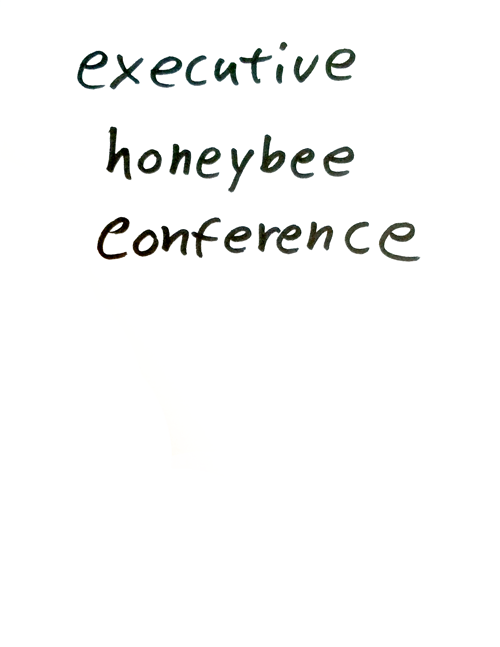 executive
honeybee
eonference